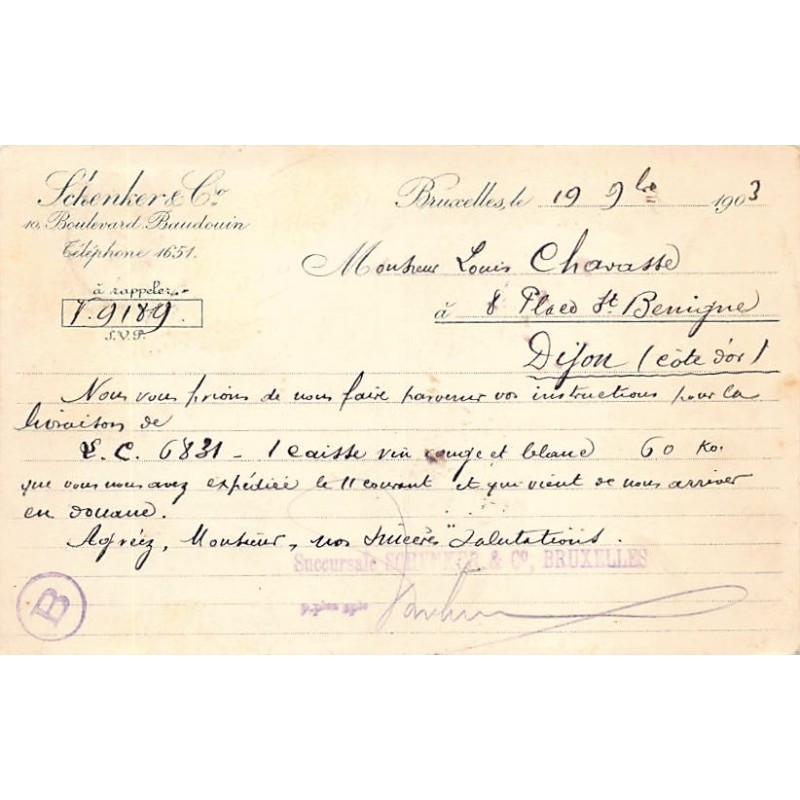 Schenker & Co
10, Boulevard Baudouin
Téléphone 1651.
à rappeler
V. 9189.
S.V.P.
Bruxelles, le 19 9bre 1903
Monsieur Louis Chavasse
à 8 Place St. Benigne
Dijon (côte d'or)
Nous vous prions de nous faire parvenir vos instructions pour la
livraison de
L. C. 6831 - 1 caisse vin rouge et blanc 60 Ko.
que vous nous avez expédiée le 11 courant et qui vient de nous arriver
en douane.
Agréez, Monsieur, nos sincères salutations.
Succursale SCHENKER & Co, BRUXELLES
B